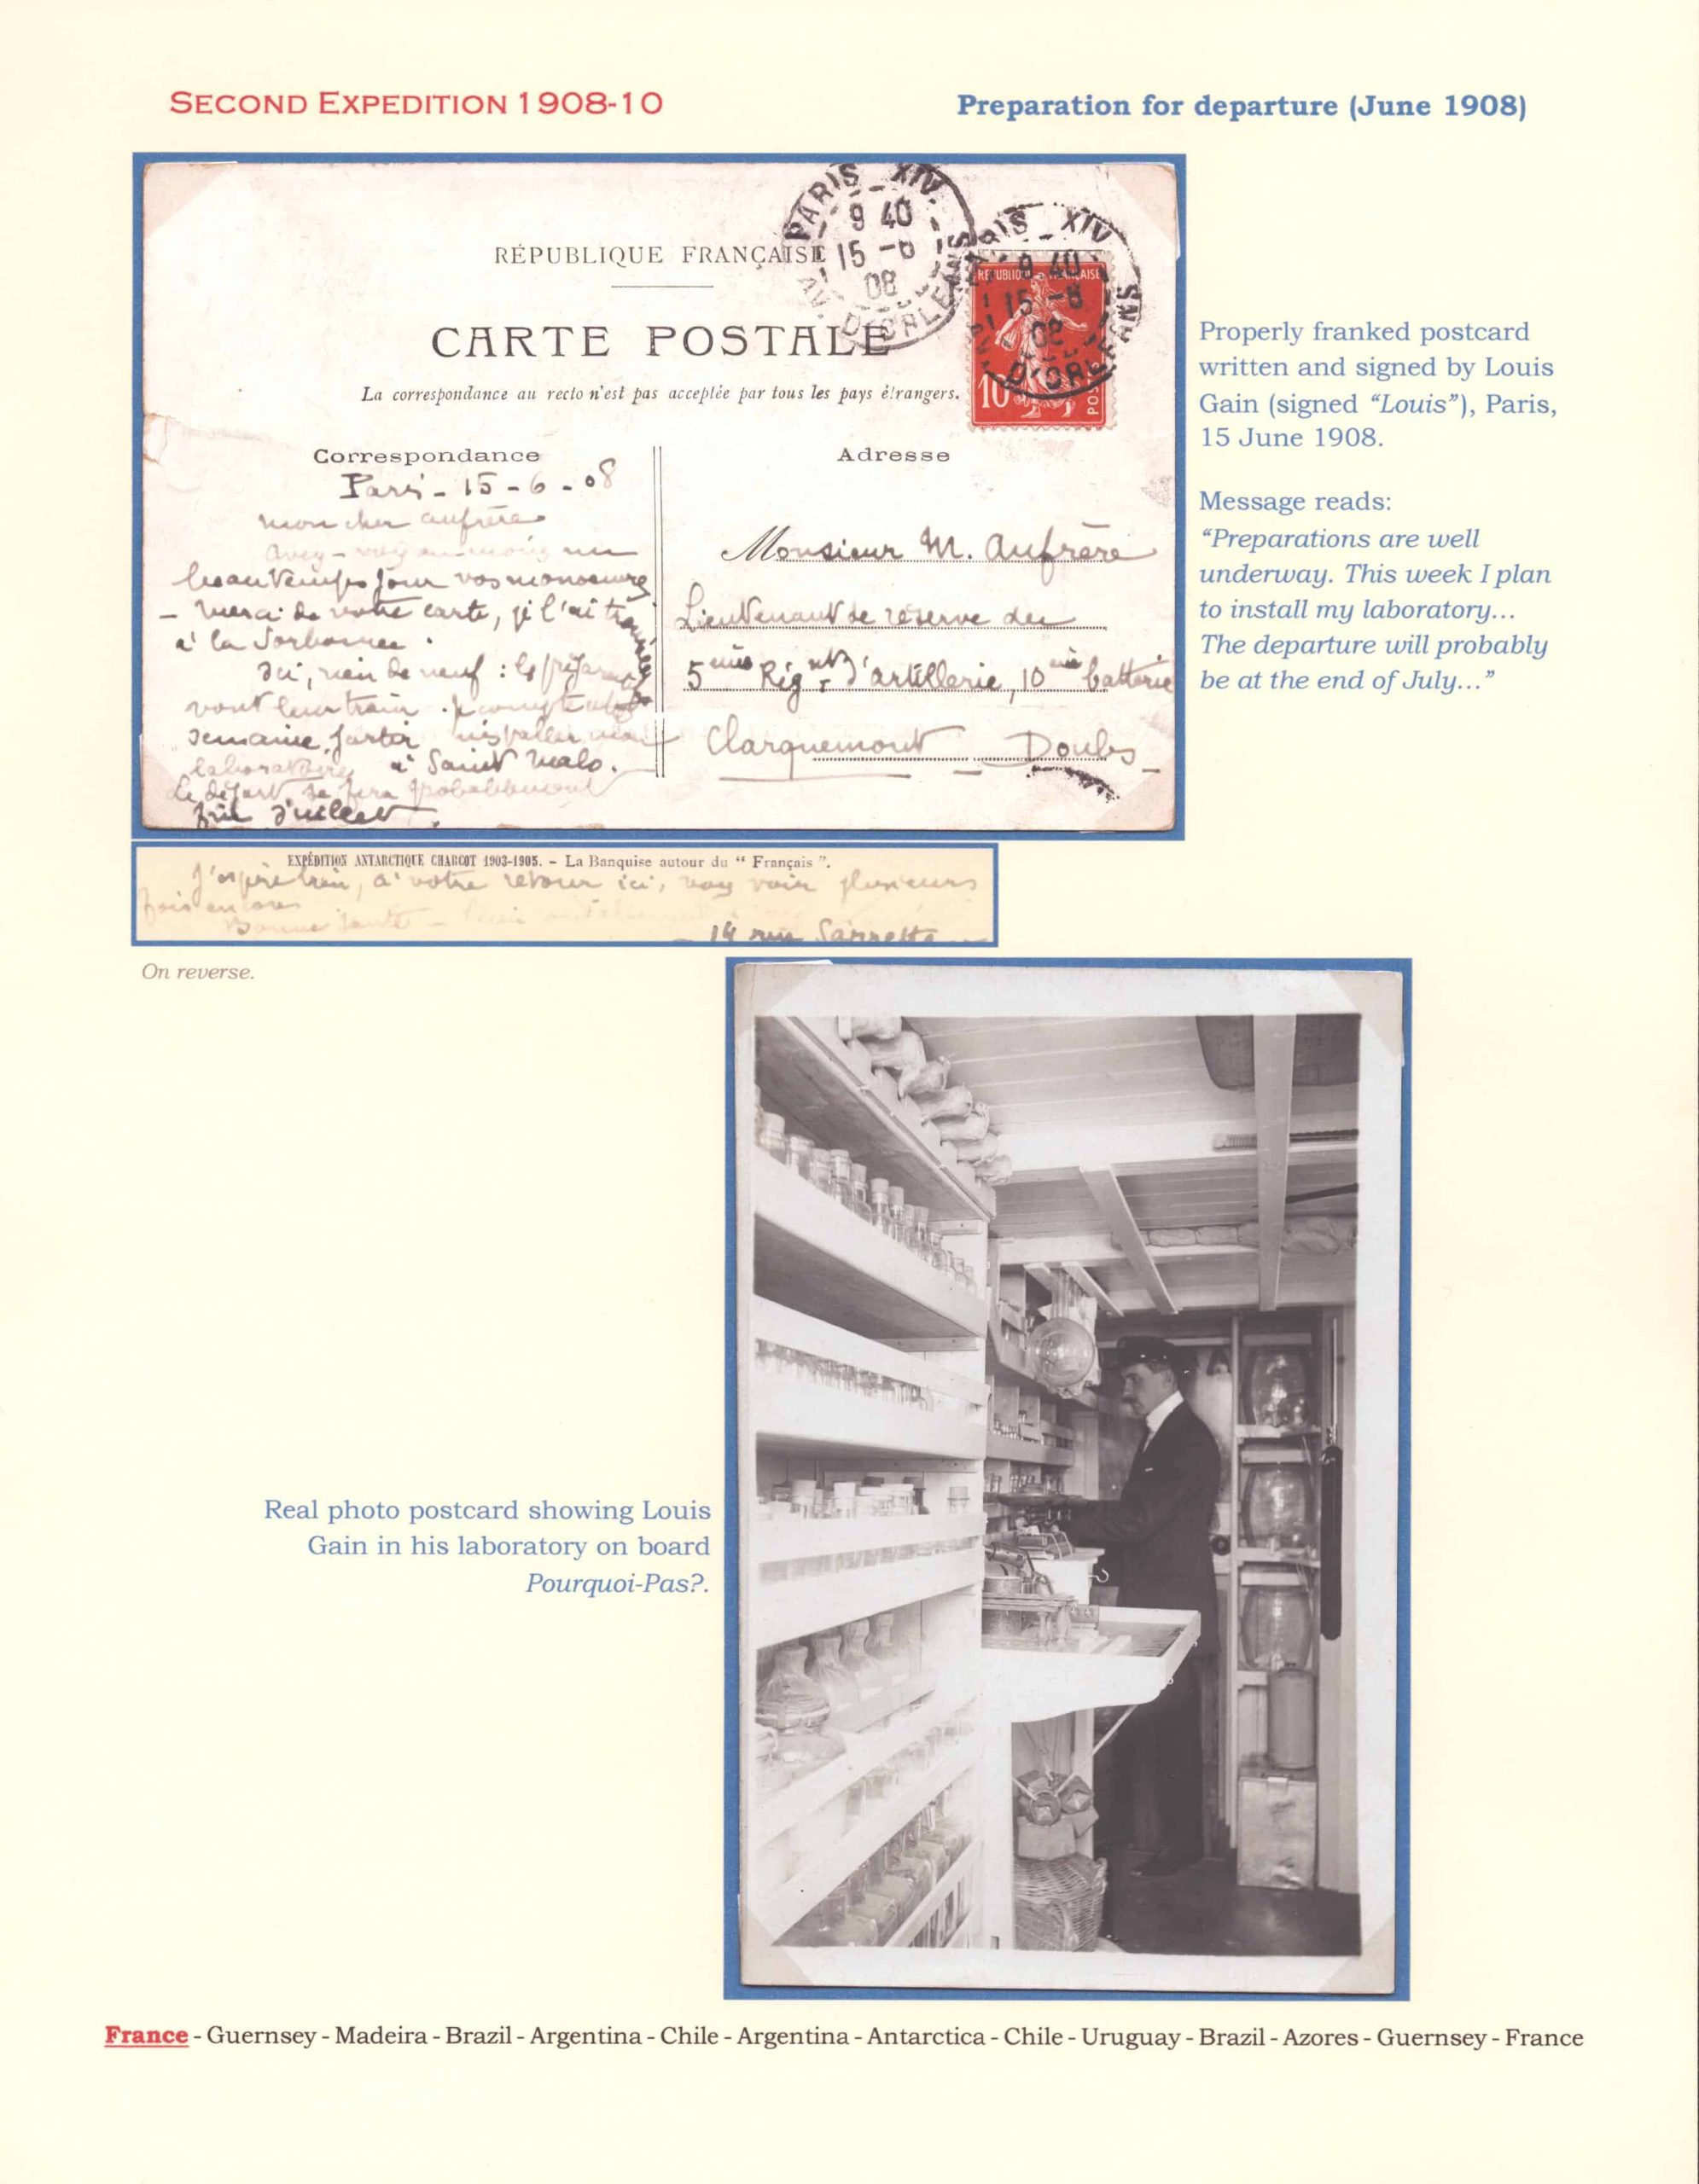 SECOND EXPEDITION 1908-10
Preparation for departure (June 1908)
PARIS XIV
9 40
15 -6
08
AV. D'ORLEANS
PARIS XIV
9 40
15 -6
08
D'ORLEANS
RÉPUBLIQUE FRANÇAISE
RÉPUBLIQUE FRANÇAISE
10
POS
CARTE POSTALE
La correspondance au recto n'est pas acceptée par tous les pays étrangers.
Correspondance
Paris - 15 - 6 - 08
mon cher aufrère
avez-vous au moins un
beau temps pour vos manoeuvres
- merci de votre carte, je l'ai trouvée
à la Sorbonne.
Ici, rien de neuf : les préparatifs
vont leur train. Je compte cette
semaine partir installer mon
laboratoire à Saint Malo.
Le départ se fera probablement
fin Juillet.
Adresse
Monsieur M. Aufrère
Lieutenant de réserve du
5ème Régt d'artillerie, 10ème batterie
Clarquemont Doubs
Properly franked postcard
written and signed by Louis
Gain (signed “Louis”), Paris,
15 June 1908.
Message reads:
“Preparations are well
underway. This week I plan
to install my laboratory...
The departure will probably
be at the end of July...”
EXPÉDITION ANTARCTIQUE CHARCOT 1903-1905. - La Banquise autour du “ Français ”.
J'espère bien, à votre retour ici, vous voir plusieurs
fois encore
Bonne santé -
14 rue Sarrette
On reverse.
Real photo postcard showing Louis
Gain in his laboratory on board
Pourquoi-Pas?.
France - Guernsey - Madeira - Brazil - Argentina - Chile - Argentina - Antarctica - Chile - Uruguay - Brazil - Azores - Guernsey - France